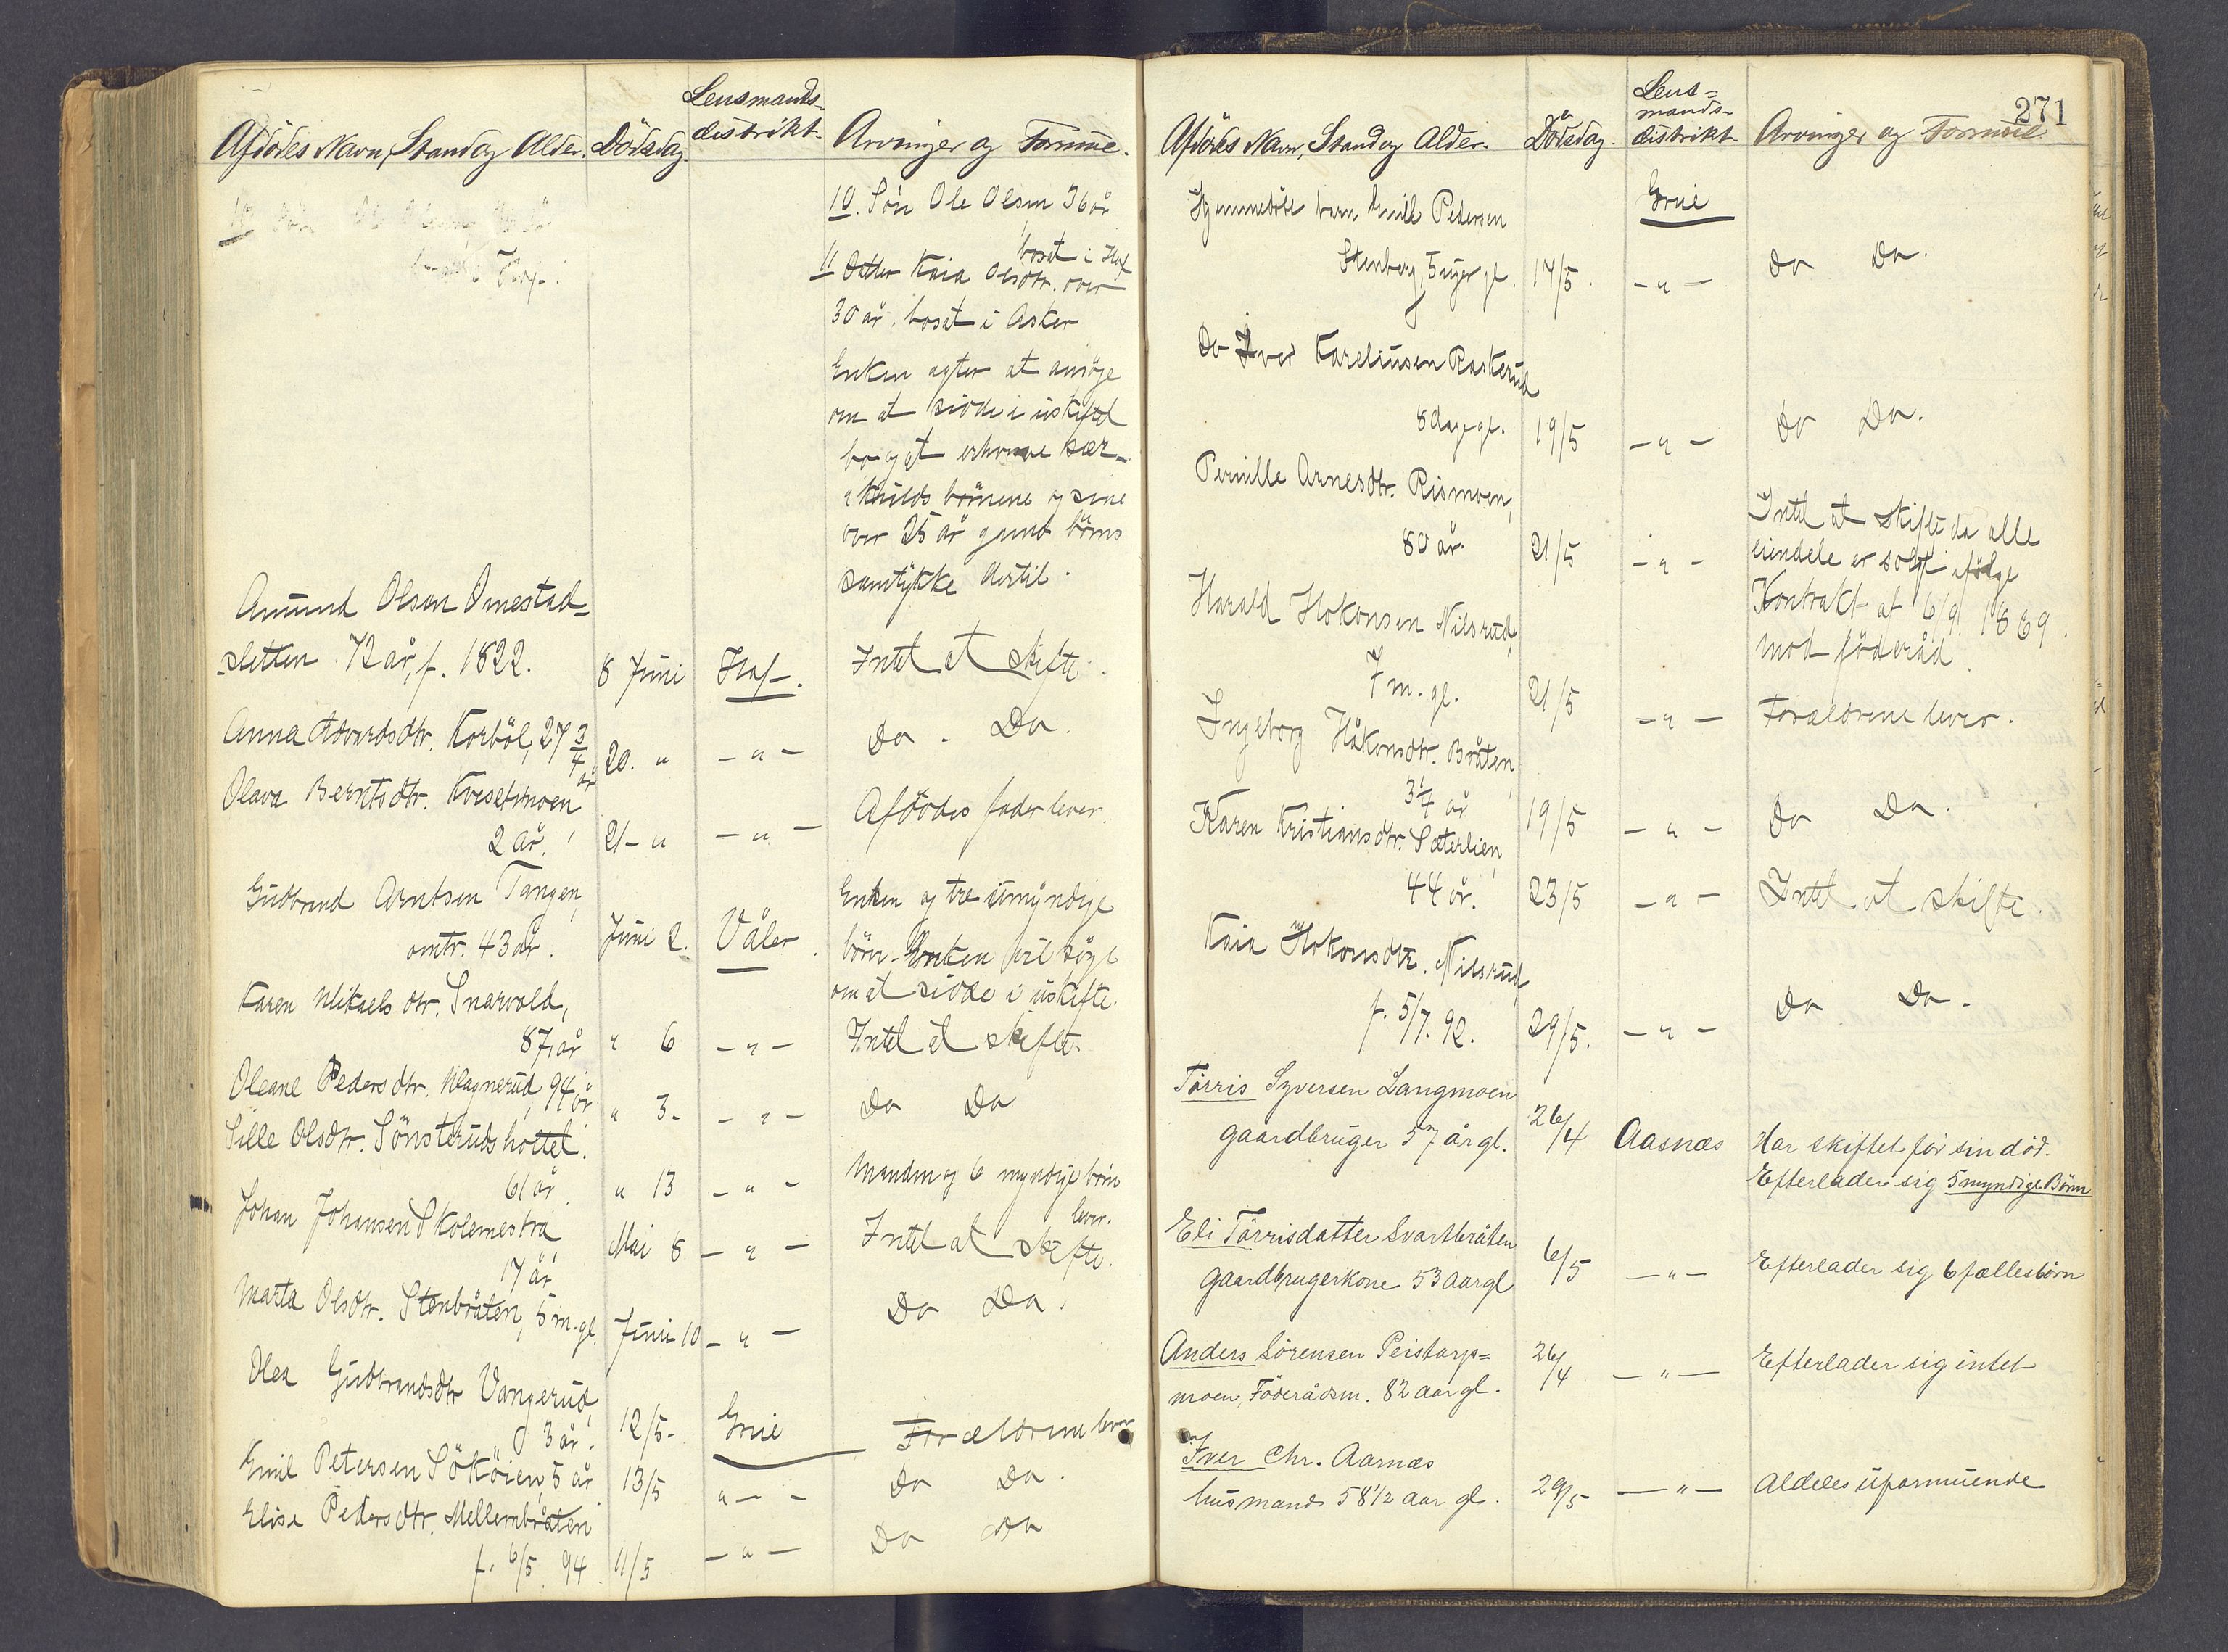 Afdödes Navn, Stand og Alder. Dödsdag. Lensmands-distrikt. Arvinger og Formue.
10. Sön Ole Olsen 36 år
boset i Hof
11 Datter Kaia Olsdtr. over
30 år. boset i Asker
Enken agter at ansöge
om at sidde i uskiftet
bo og at erhverve sær-
skilds börnene og sine
over 25 år gamle börns
samtykke dertil.
Amund Olsen Omestad-
-sletten 72 år, f. 1822. 8 Juni Hof. Intet at skifte.
Anna Edvardsdtr. Korböl, 27 3/4 år 20. " - " - Do. Do.
Olava Berntsdtr. Kvesetmoen
2 år. 21 - " - " - Afdödes fader lever.
Gudbrand Arntsen Tangen,
omtr. 43 år. Juni 2. Våler. Enken og tre umyndige
börn. Enken vil söge
om at sidde i uskifte.
Karen Mikaelsdtr. Snarvold,
87 år " 6 - " - Intet at skifte.
Oleane Pedersdtr. Magnerud, 94 år " 3. - " - Do Do
Sille Olsdtr. Sönsterudshottet.
61 år. " 13 - " - Manden og 6 myndige börn
lever.
Johan Johansen Skolemestra
17 år Mai 8 - " - Intet at skifte.
Marta Olsdtr. Stenbråten, 5 m. gl. Juni 10 - " - Do Do.
Olea Gudbrandsdtr Vangerud,
3 år. 12/5. Grue Forældrene lever
Emil Petersen Sököien, 5 år 13/5 " - - Do Do.
Elise Pedersdtr. Mellembråten
f. 6/5. 94 11/5 - " - Do Do
271
Afdödes Navn, Stand og Alder. Dödsdag. Lens-mands-distrikt. Arvinger og Formue
Hjemmedöbt barn Emil Pedersen Grue
Stenberg, 5 uger gl. 17/5. - " - Do Do.
Do Iver Kareliusen Raskerud
8 dage gl. 19/5 - " - Do Do.
Pernille Arnesdtr. Rismoen,
80 år. 21/5 - " - Intet at skifte da alle
eiendele er solgt ifölge
Kontrakt af 6/9. 1869.
mod föderåd.
Harald Hokonsen Nilsrud,
7 m. gl. 21/5 - " - Forældrene lever.
Ingeborg Håkonsdtr. Bråten,
3 1/4 år 19/5 - " - Do Do.
Karen Kristiansdtr. Sæterlien,
44 år. 23/5 - " - Intet at skifte.
Kaia Hokonsdtr. Nilsrud,
f. 5/7. 92. 29/5. - " - Do Do.
Törris Syversen Langmoen
gaardbruger 57 år gl. 26/4 Aasnæs Har skiftet för sin död.
Efterlader sig 5 myndige Börn
Eli Törrisdatter Svartbråten
gaardbrugerkone 53 aar gl 6/5 - " - Efterlader sig 6 fællesbörn
Anders Sörensen Peistorp-
moen, Föderådsm. 82 aar gl. 26/4 - " - Efterlader sig intet
Iver Chr. Aarnæs
husmand 58 1/2 aar gl. 29/5 - " - Aldeles uformuende